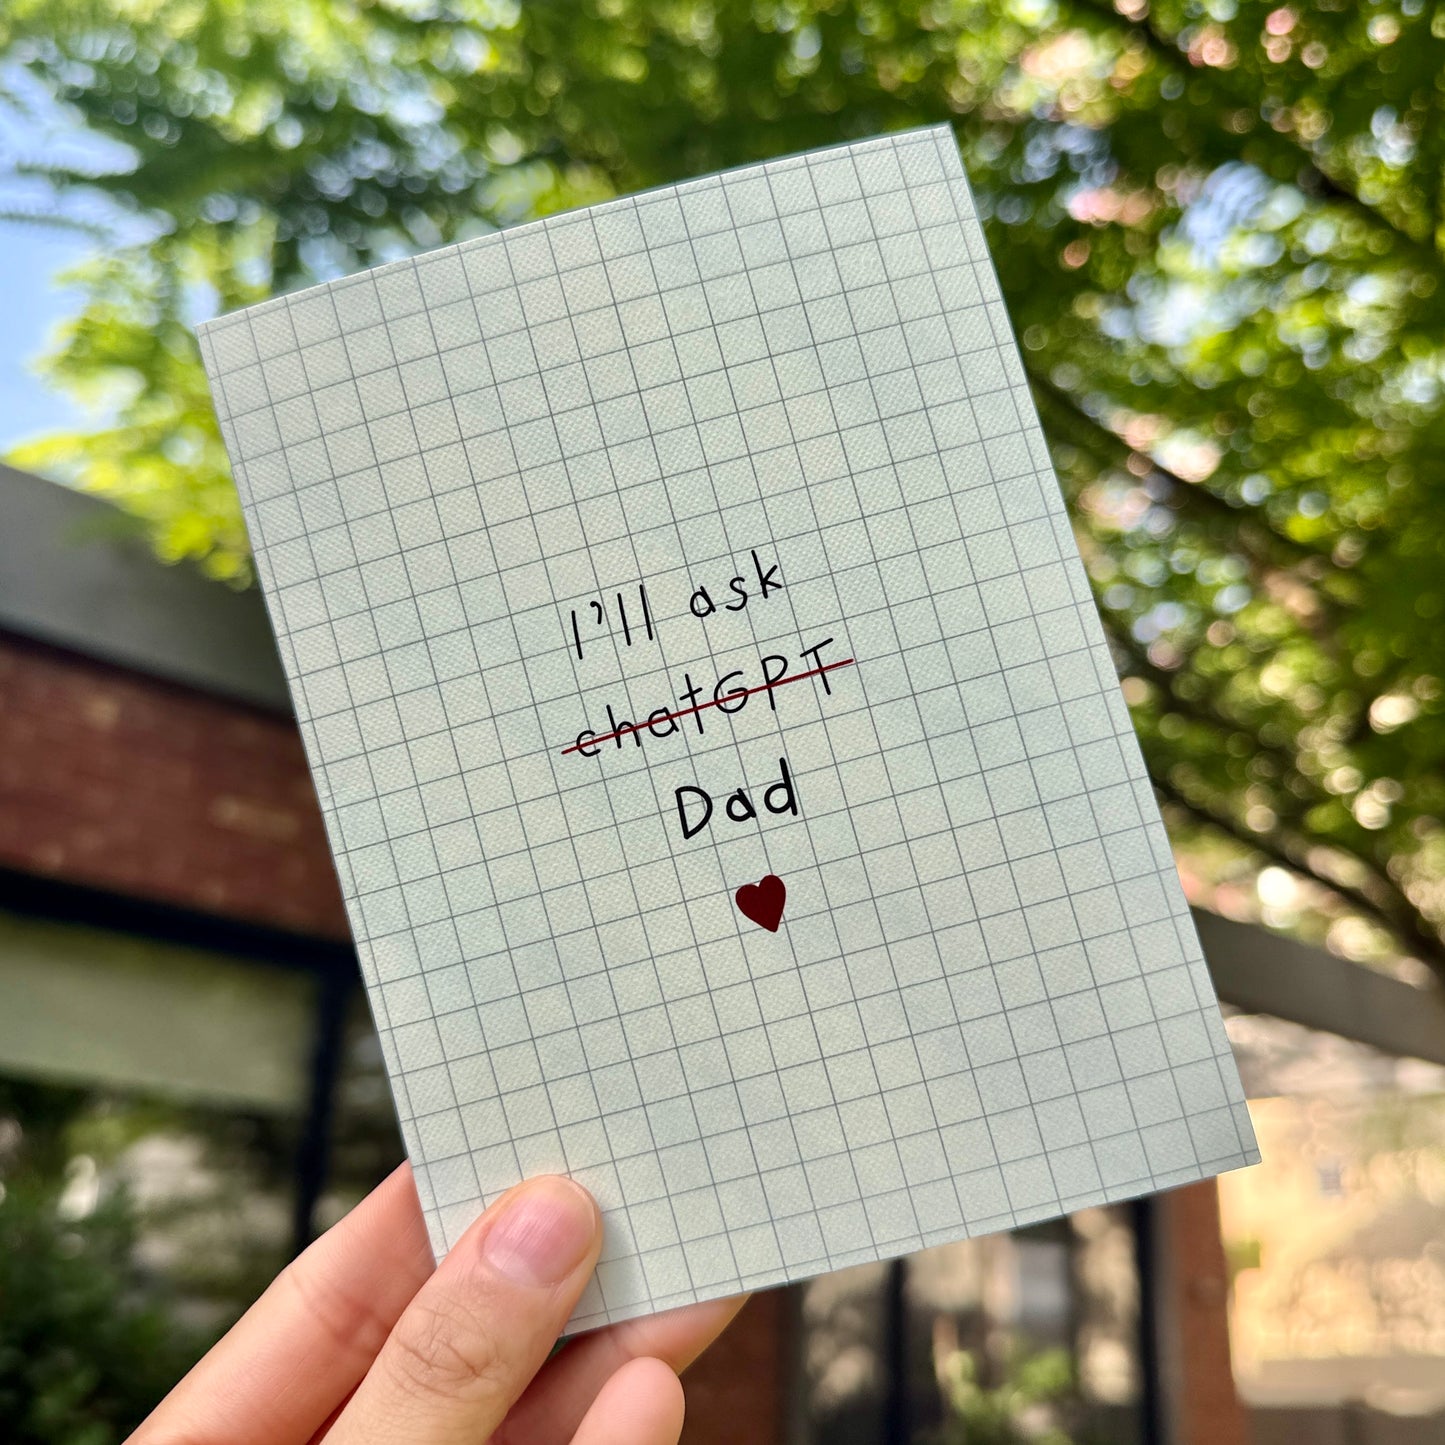 I'll ask
chatGPT
Dad